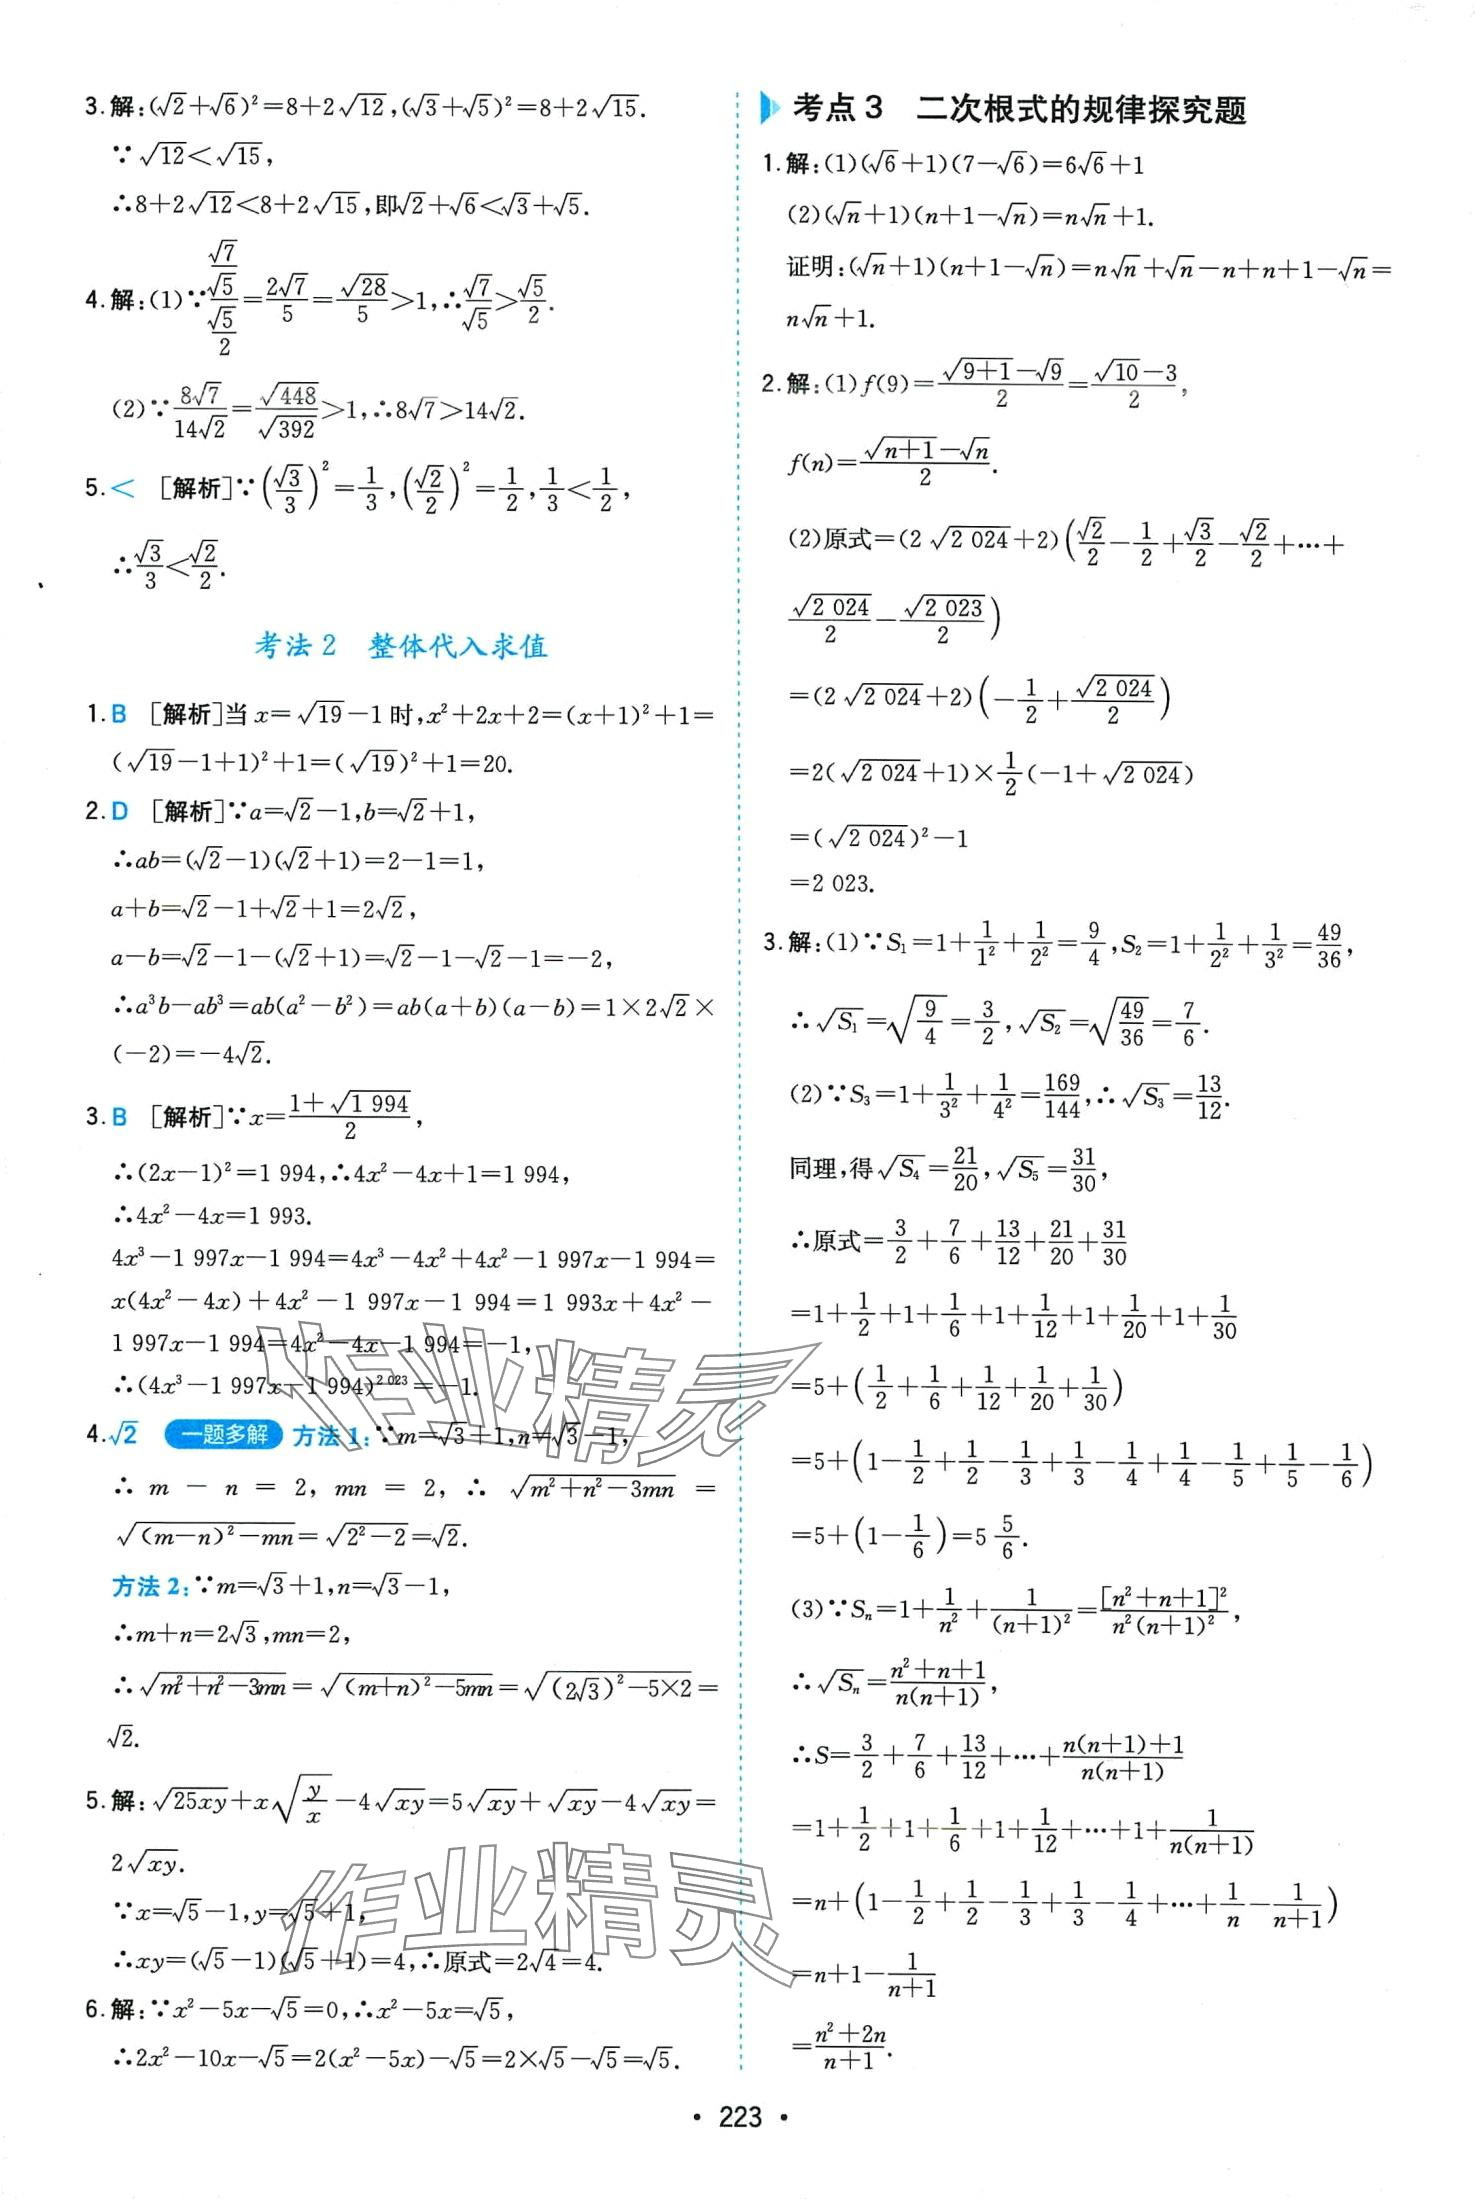 3.解:(√2+√6)²=8+2√12,(√3+√5)²=8+2√15.
∵√12<√15,
∴8+2√12<8+2√15,即√2+√6<√3+√5.
4.解:(1)∵(√7/√5)/(√5/2)=2√7/5=√28/5>1,∴√7/√5>√5/2.
(2)∵8√7/14√2=√448/√392>1,∴8√7>14√2.
5.< [解析]∵(√3/3)²=1/3,(√2/2)²=1/2,1/3<1/2,
∴√3/3<√2/2.
考法2 整体代入求值
1.B [解析]当x=√19-1时,x²+2x+2=(x+1)²+1=
(√19-1+1)²+1=(√19)²+1=20.
2.D [解析]∵a=√2-1,b=√2+1,
∴ab=(√2-1)(√2+1)=2-1=1,
a+b=√2-1+√2+1=2√2,
a-b=√2-1-(√2+1)=√2-1-√2-1=-2,
∴a³b-ab³=ab(a²-b²)=ab(a+b)(a-b)=1×2√2×
(-2)=-4√2.
3.B [解析]∵x=(1+√1 994)/2,
∴(2x-1)²=1 994,∴4x²-4x+1=1 994,
∴4x²-4x=1 993.
4x³-1 997x-1 994=4x³-4x²+4x²-1 997x-1 994=
x(4x²-4x)+4x²-1 997x-1 994=1 993x+4x²-
1 997x-1 994=4x²-4x-1 994=-1,
∴(4x³-1 997x-1 994)²⁰²³=-1.
4.√2 一题多解 方法1:∵m=√3+1,n=√3-1,
∴m-n=2,mn=2,∴√(m²+n²-3mn)=
√((m-n)²-mn)=√(2²-2)=√2.
方法2:∵m=√3+1,n=√3-1,
∴m+n=2√3,mn=2,
∴√(m²+n²-3mn)=√((m+n)²-5mn)=√((2√3)²-5×2)=
√2.
5.解:√(25xy)+x√(y/x)-4√(xy)=5√(xy)+√(xy)-4√(xy)=
2√(xy).
∵x=√5-1,y=√5+1,
∴xy=(√5-1)(√5+1)=4,∴原式=2√4=4.
6.解:∵x²-5x-√5=0,∴x²-5x=√5,
∴2x²-10x-√5=2(x²-5x)-√5=2×√5-√5=√5.
考点3 二次根式的规律探究题
1.解:(1)(√6+1)(7-√6)=6√6+1
(2)(√n+1)(n+1-√n)=n√n+1.
证明:(√n+1)(n+1-√n)=n√n+√n-n+n+1-√n=
n√n+1.
2.解:(1)f(9)=(√(9+1)-√9)/2=(√10-3)/2,
f(n)=(√(n+1)-√n)/2.
(2)原式=(2√2 024+2)(√2/2-1/2+√3/2-√2/2+…+
√2 024/2-√2 023/2)
=(2√2 024+2)(-1/2+√2 024/2)
=2(√2 024+1)×1/2(-1+√2 024)
=(√2 024)²-1
=2 023.
3.解:(1)∵S₁=1+1/1²+1/2²=9/4,S₂=1+1/2²+1/3²=49/36,
∴√S₁=√(9/4)=3/2,√S₂=√(49/36)=7/6.
(2)∵S₃=1+1/3²+1/4²=169/144,∴√S₃=13/12.
同理,得√S₄=21/20,√S₅=31/30,
∴原式=3/2+7/6+13/12+21/20+31/30
=1+1/2+1+1/6+1+1/12+1+1/20+1+1/30
=5+(1/2+1/6+1/12+1/20+1/30)
=5+(1-1/2+1/2-1/3+1/3-1/4+1/4-1/5+1/5-1/6)
=5+(1-1/6)=5 5/6.
(3)∵Sₙ=1+1/n²+1/(n+1)²=[n²+n+1]²/n²(n+1)²,
∴√Sₙ=(n²+n+1)/n(n+1),
∴S=3/2+7/6+13/12+…+(n(n+1)+1)/n(n+1)
=1+1/2+1+1/6+1+1/12+…+1+1/n(n+1)
=n+(1-1/2+1/2-1/3+1/3-1/4+…+1/n-1/(n+1))
=n+1-1/(n+1)
=(n²+2n)/(n+1).
作业精灵
作业精灵
• 223 •